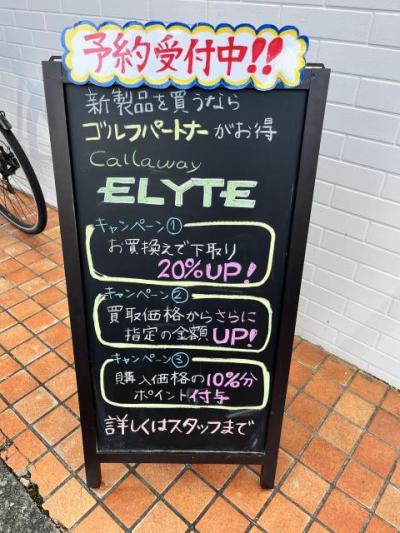 予約受付中!!
新製品を買うなら
ゴルフパートナーがお得
Callaway
ELYTE
キャンペーン①
お買換えで下取り
20%UP!
キャンペーン②
買取価格からさらに
指定の金額UP!
キャンペーン③
購入価格の10%分
ポイント付与
詳しくはスタッフまで